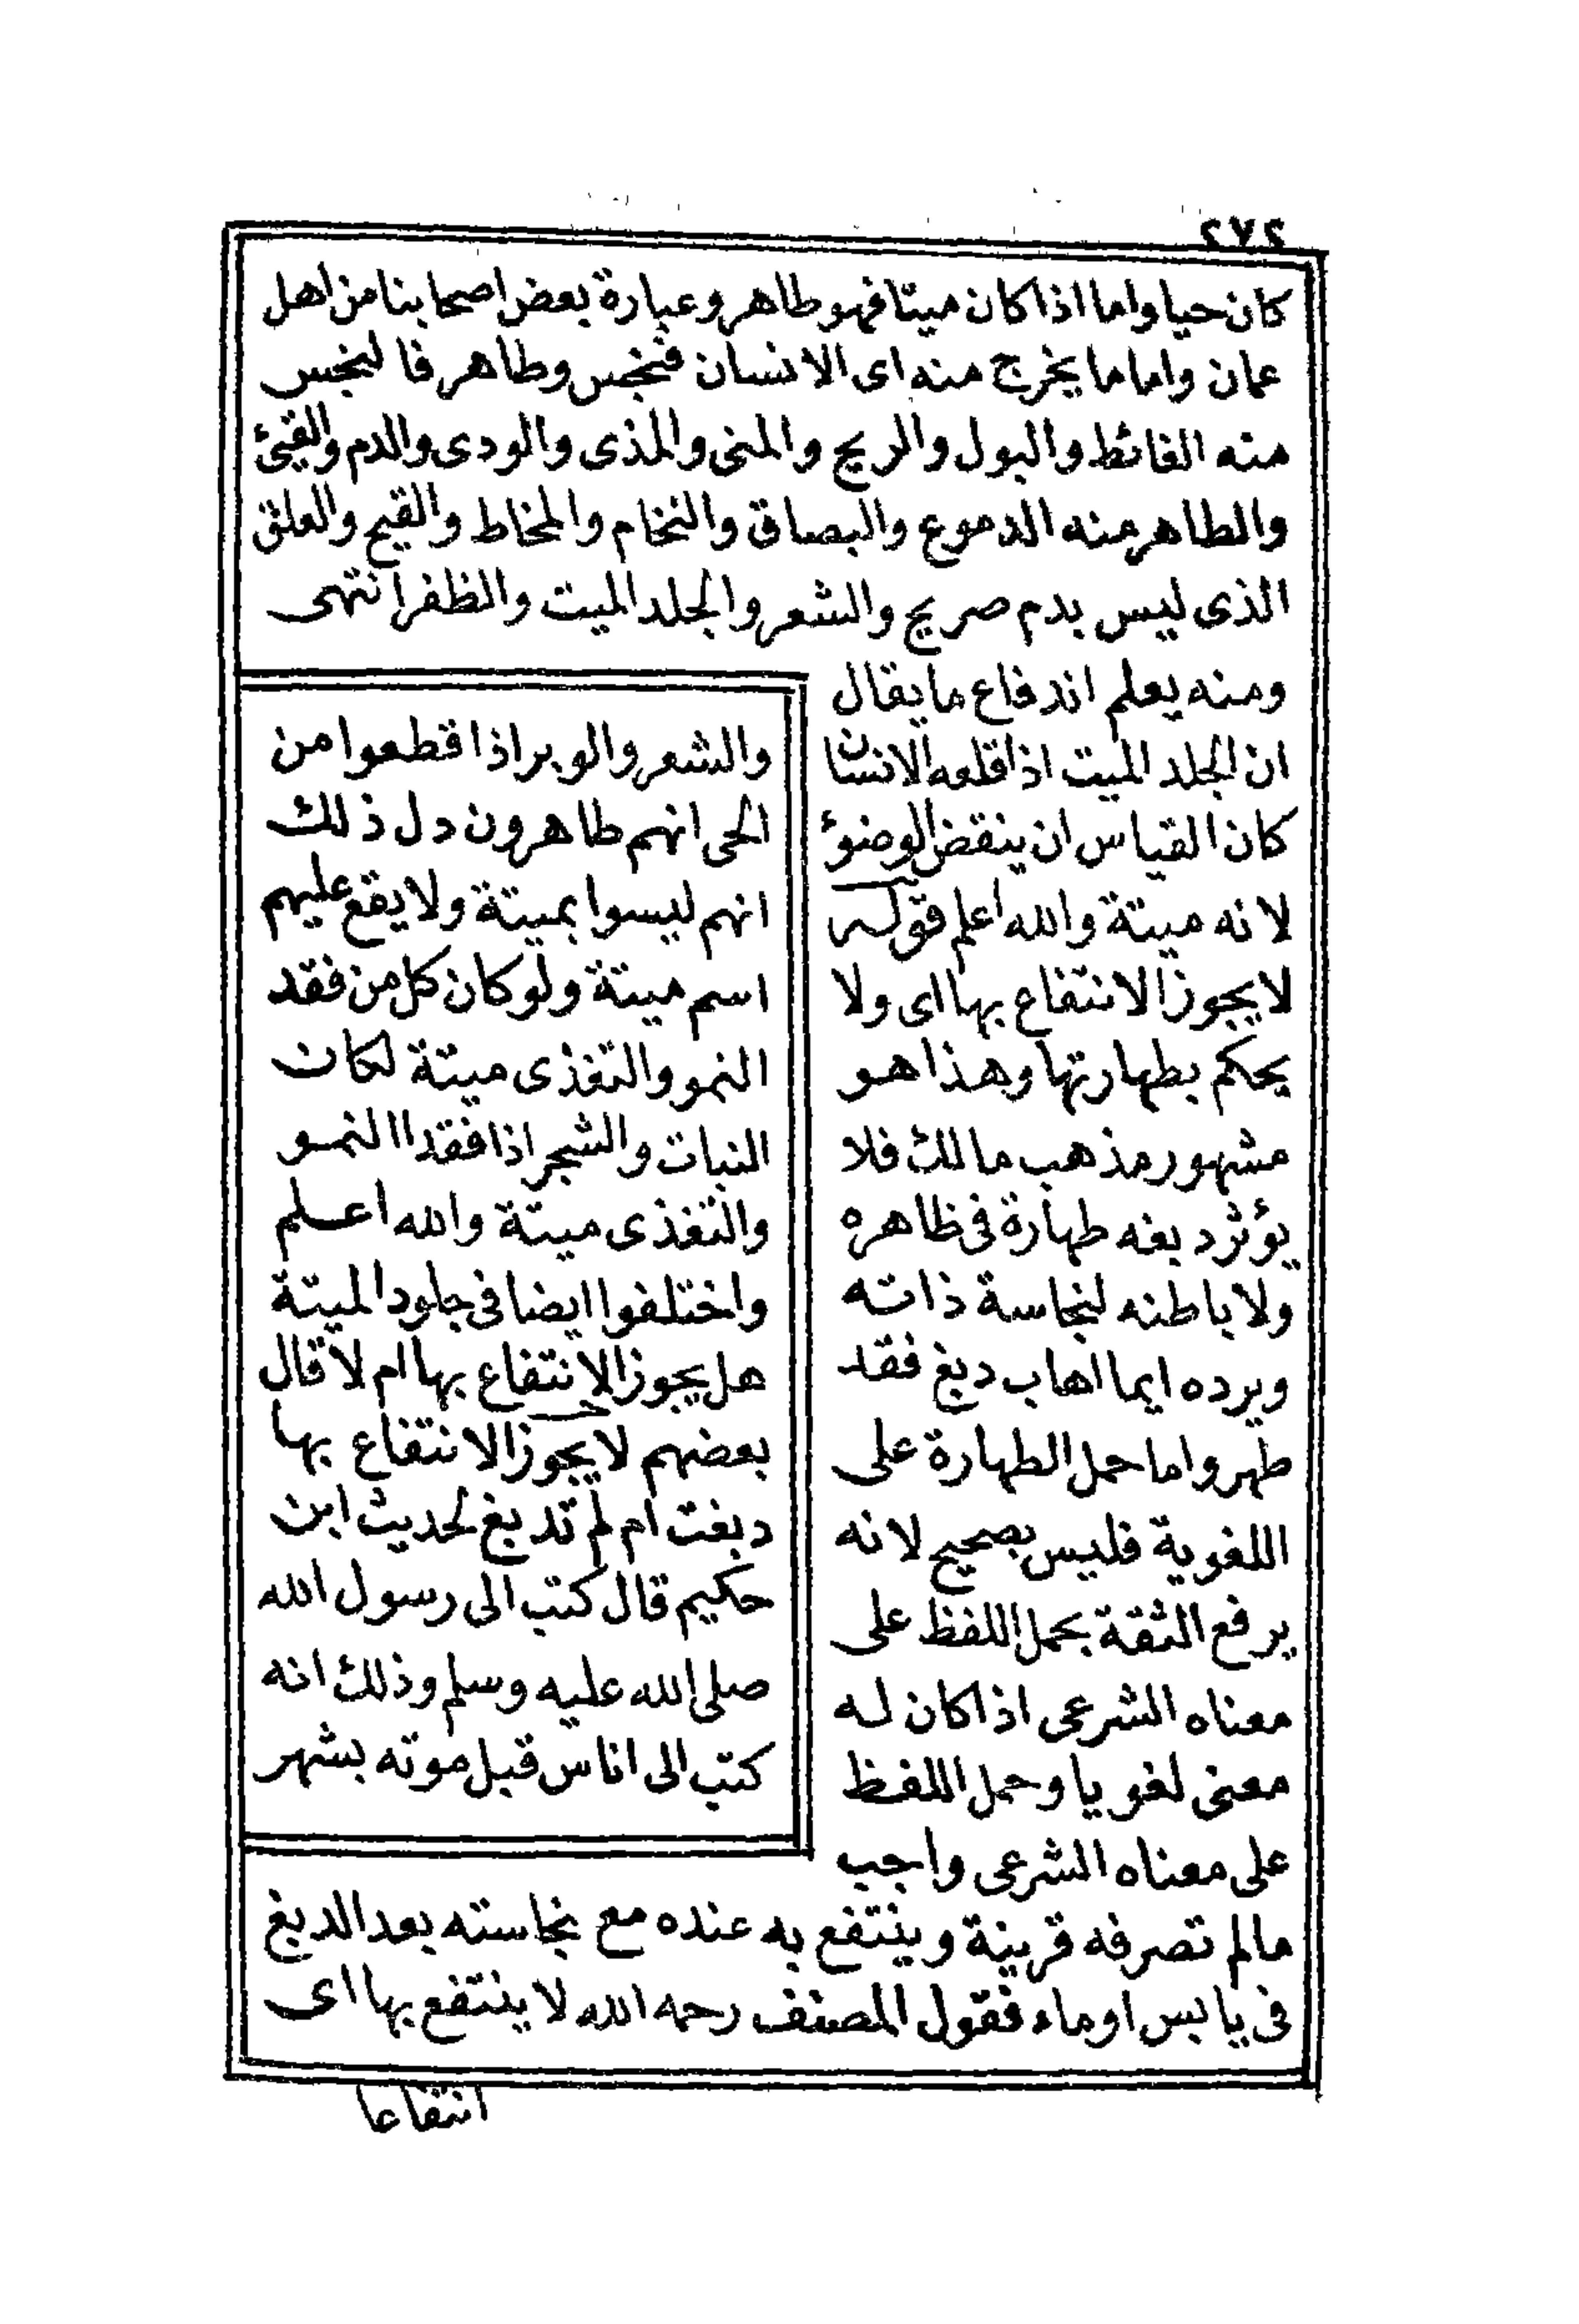 ٢٧٢
كان حيا واما اذا كان ميتا فهو طاهر وعبارة بعض اصحابنا من اهل
عمان واما ما يخرج منه اى الانسان فنجس وطاهر فالنجس
منه الغائط والبول والريح والمنى والمذى والودى والدم والقيئ
والطاهر منه الدموع والبصاق والنخام والمخاط والقيح والعلق
الذى ليس بدم صريح والشعر والجلد الميت والظفر انتهى
ومنه يعلم اندفاع ما يقال
ان الجلد الميت اذا قلعه الانسان
كان القياس ان ينقض الوضوئ
لانه ميتة والله اعلم قوله
لا يجوز الانتفاع بها اى ولا
يحكم بطهارتها وهذا هو
مشهور مذهب مالك فلا
يؤثر دبغه طهارة فى ظاهره
ولا باطنه لنجاسة ذاته
ويرده ايما اهاب دبغ فقد
طهر واما حمل الطهارة على
اللغوية فليس بصحيح لانه
يرفع الثقة بحمل اللفظ على
معناه الشرعى اذا كان له
معنى لغويا وحمل اللفظ
على معناه الشرعى واجب
مالم تصرفه قرينة وينتفع به عنده مع نجاسته بعد الدبغ
فى يابس او ماء فقول المصنف رحمه الله لا ينتفع بها اى
والشعر والوبر اذا قطعوا من
الحى انهم طاهرون دل ذلك
انهم ليسوا بميتة ولا يقع عليهم
اسم ميتة ولو كان كل من فقد
النمو والتغذى ميتة لكان
النبات والشجر اذا فقدا النمو
والتغذى ميتة والله اعلم
واختلفوا ايضا فى جلود الميتة
هل يجوز الانتفاع بها ام لا قال
بعضهم لا يجوز الانتفاع بها
دبغت ام لم تدبغ لحديث ابن
حكيم قال كتب الى رسول الله
صلى الله عليه وسلم وذلك انه
كتب الى اناس قبل موته بشهر
انتفاعا